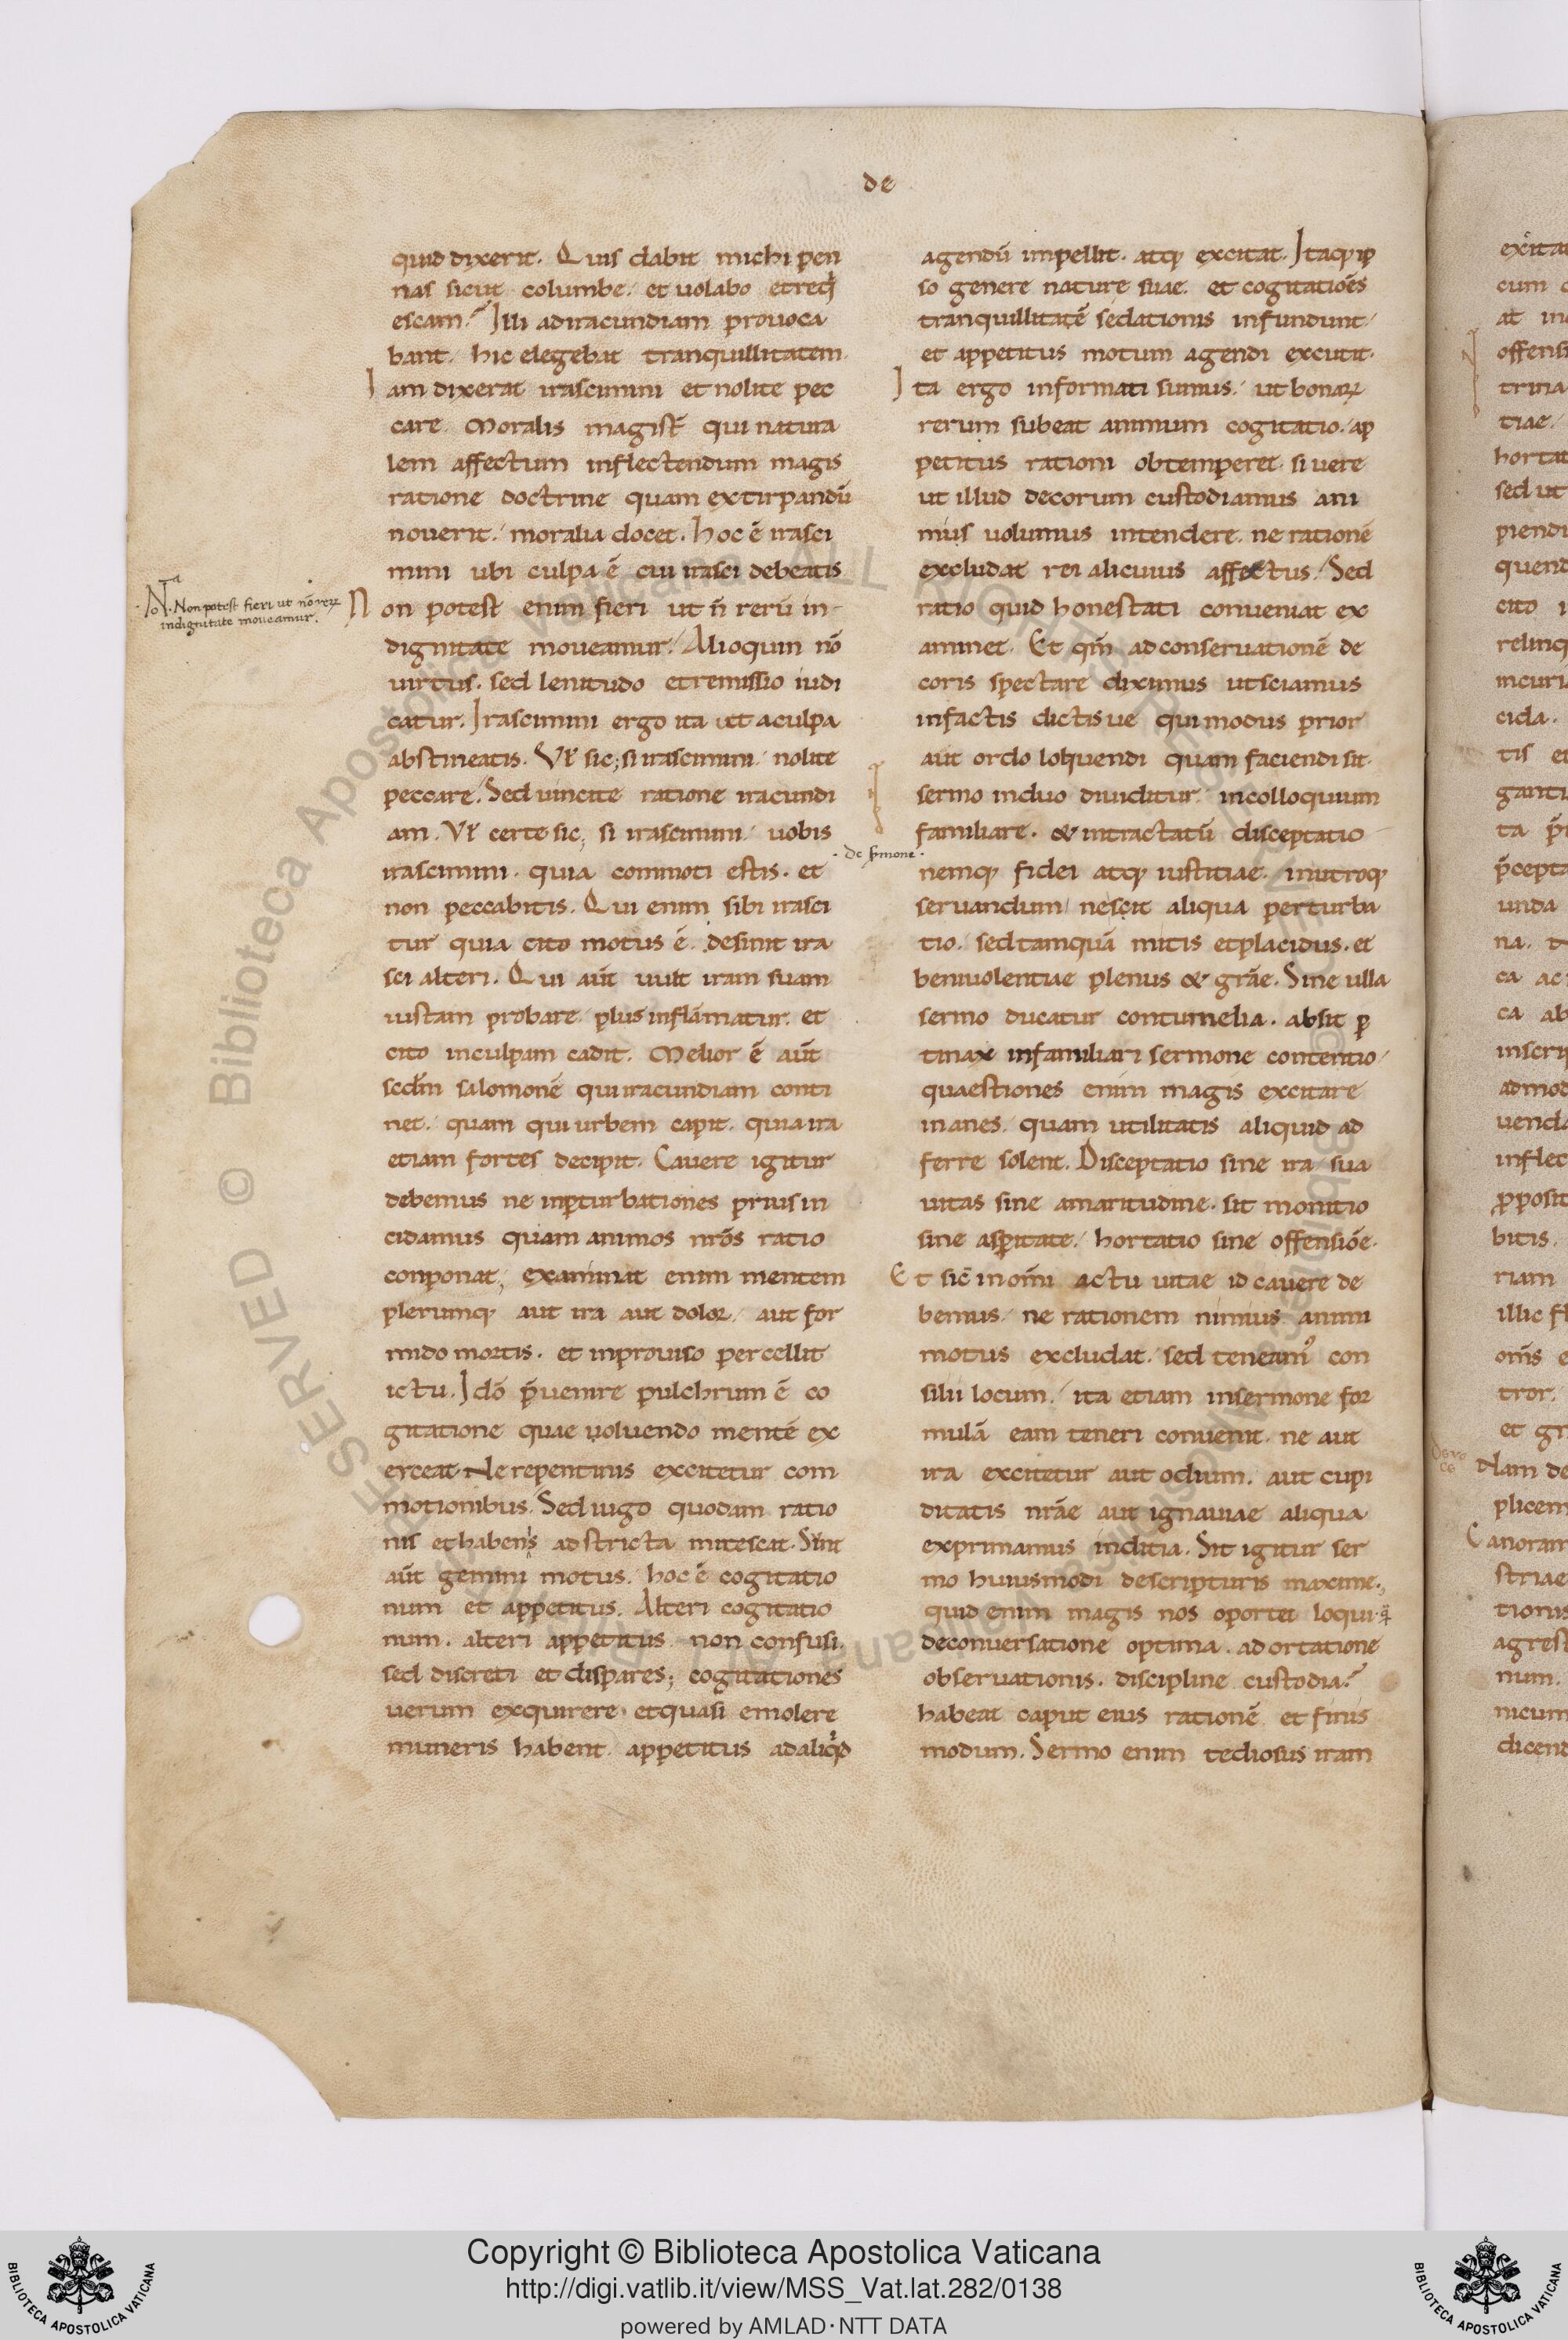 de
quid dixerit. Quis dabit michi pen
nas sicut columbe. et uolabo et req̇
escam? Illi adiracundiam prouoca
bant. hic elegebat tranquillitatem.
Iam dixerat irascimini et nolite pec
care. Moralis magist̄ qui natura
lem affectum inflectendum magis
ratione doctrine quam extirpandū
nouerit. moralia docet. hoc ē irasci
mini ubi culpa ē cui irasci debeatis
Non potest enim fieri ut n̄ rerū in-
dignitate moueamur. Alioquin nō
uirtus. sed lenitudo et remissio iudi
catur. Irascimini ergo ita ut aculpa
abstineatis. Vl̄ sic; si irascimini. nolite
peccare. Sed uincite ratione iracundi
am. Vl̄ certe sic; si irascimini. uobis
irascimini. quia commoti estis. et
non peccabitis. Qui enim sibi irasci
tur quia cito motus ē. desinit ira
sci alteri. Qui aūt uult iram suam
iustam probare. plus inflāmatur. et
cito inculpam cadit. Melior ē aūt
scdm̄ salomonē qui iracundiam conti
net. quam qui urbem capit. quia ira
etiam fortes decipit. Cauere igitur
debemus ne inp̄turbationes prius in
cidamus quam animos nrōs ratio
conponat; examinat enim mentem
plerumq; aut ira aut dolor. aut for
mido mortis. et inprouiso percellit
ictu. Idō p̄uenire pulchrum ē co
gitatione quae uoluendo mentē ex
erceat. Ne repentinis excitetur com
motionibus. Sed iugo quodam ratio
nis et habenis adstricta mitescat. Sunt
aūt gemini motus. hoc ē cogitatio
num et appetitus. Alteri cogitatio
num. alteri appetitus. non confusi.
sed discreti et dispares; cogitationes
uerum exquirere. et quasi emolere
muneris habent. appetitus adaliq̇d
·Nᵃ. Non potest fieri ut nō rerꝝ
indignitate moueamur.
agendū impellit. atq; excitat. Itaq; ip
so genere nature suae. et cogitatiōes
tranquillitatē sedationis infundunt.
et appetitus motum agendi excutit.
Ita ergo informati sumus. ut bonaꝝ
rerum subeat animum cogitatio. ap
petitus rationi obtemperet. si uere
ut illud decorum custodiamus ani
mus uolumus intendere. ne rationē
excludat rei alicuius affectus. Sed
ratio quid honestati conueniat ex
aminet. Et qm̄ adconseruationē de
coris spectare diximus utsciamus
infactis dictis ue qui modus prior
aut ordo loquendi quam faciendi sit.
sermo induo diuiditur. incolloquium
familiare. & intractatū disceptatio
· de s̄mone ·
nemq; fidei atq; iustitiae. inutroq;
seruandum nescit aliqua perturba
tio. sed tamquā mitis et placidus. et
beniuolentiae plenus & grāe. Sine ulla
sermo ducatur contumelia. absit ꝑ
tinax infamiliari sermone contentio.
quaestiones enim magis excitare
inanes. quam utilitatis aliquid ad
ferre solent. Disceptatio sine ira. sua
uitas sine amaritudine. sit monitio
sine asꝑitate. hortatio sine offensiōe.
Et sic̄ in om̄i actu uitae id cauere de
bemus. ne rationem nimius animi
motus excludat. sed teneam᾽ con
silii locum. ita etiam insermone for
mulā eam teneri conuenit. ne aut
ira excitetur aut odium. aut cupi
ditatis nrāe aut ignauiae aliqua
exprimamus inditia. Sit igitur ser
mo huiusmodi descripturis maxime.
quid enim magis nos oportet loqui. q̄
deconuersatione optima. adortatione
obseruationis. discipline custodia?
habeat caput eius rationē et finis
modum. Sermo enim tediosus iram
Copyright © Biblioteca Apostolica Vaticana
http://digi.vatlib.it/view/MSS_Vat.lat.282/0138
powered by AMLAD·NTT DATA
BIBLIOTECA APOSTOLICA VATICANA
BIBLIOTECA APOSTOLICA VATICANA